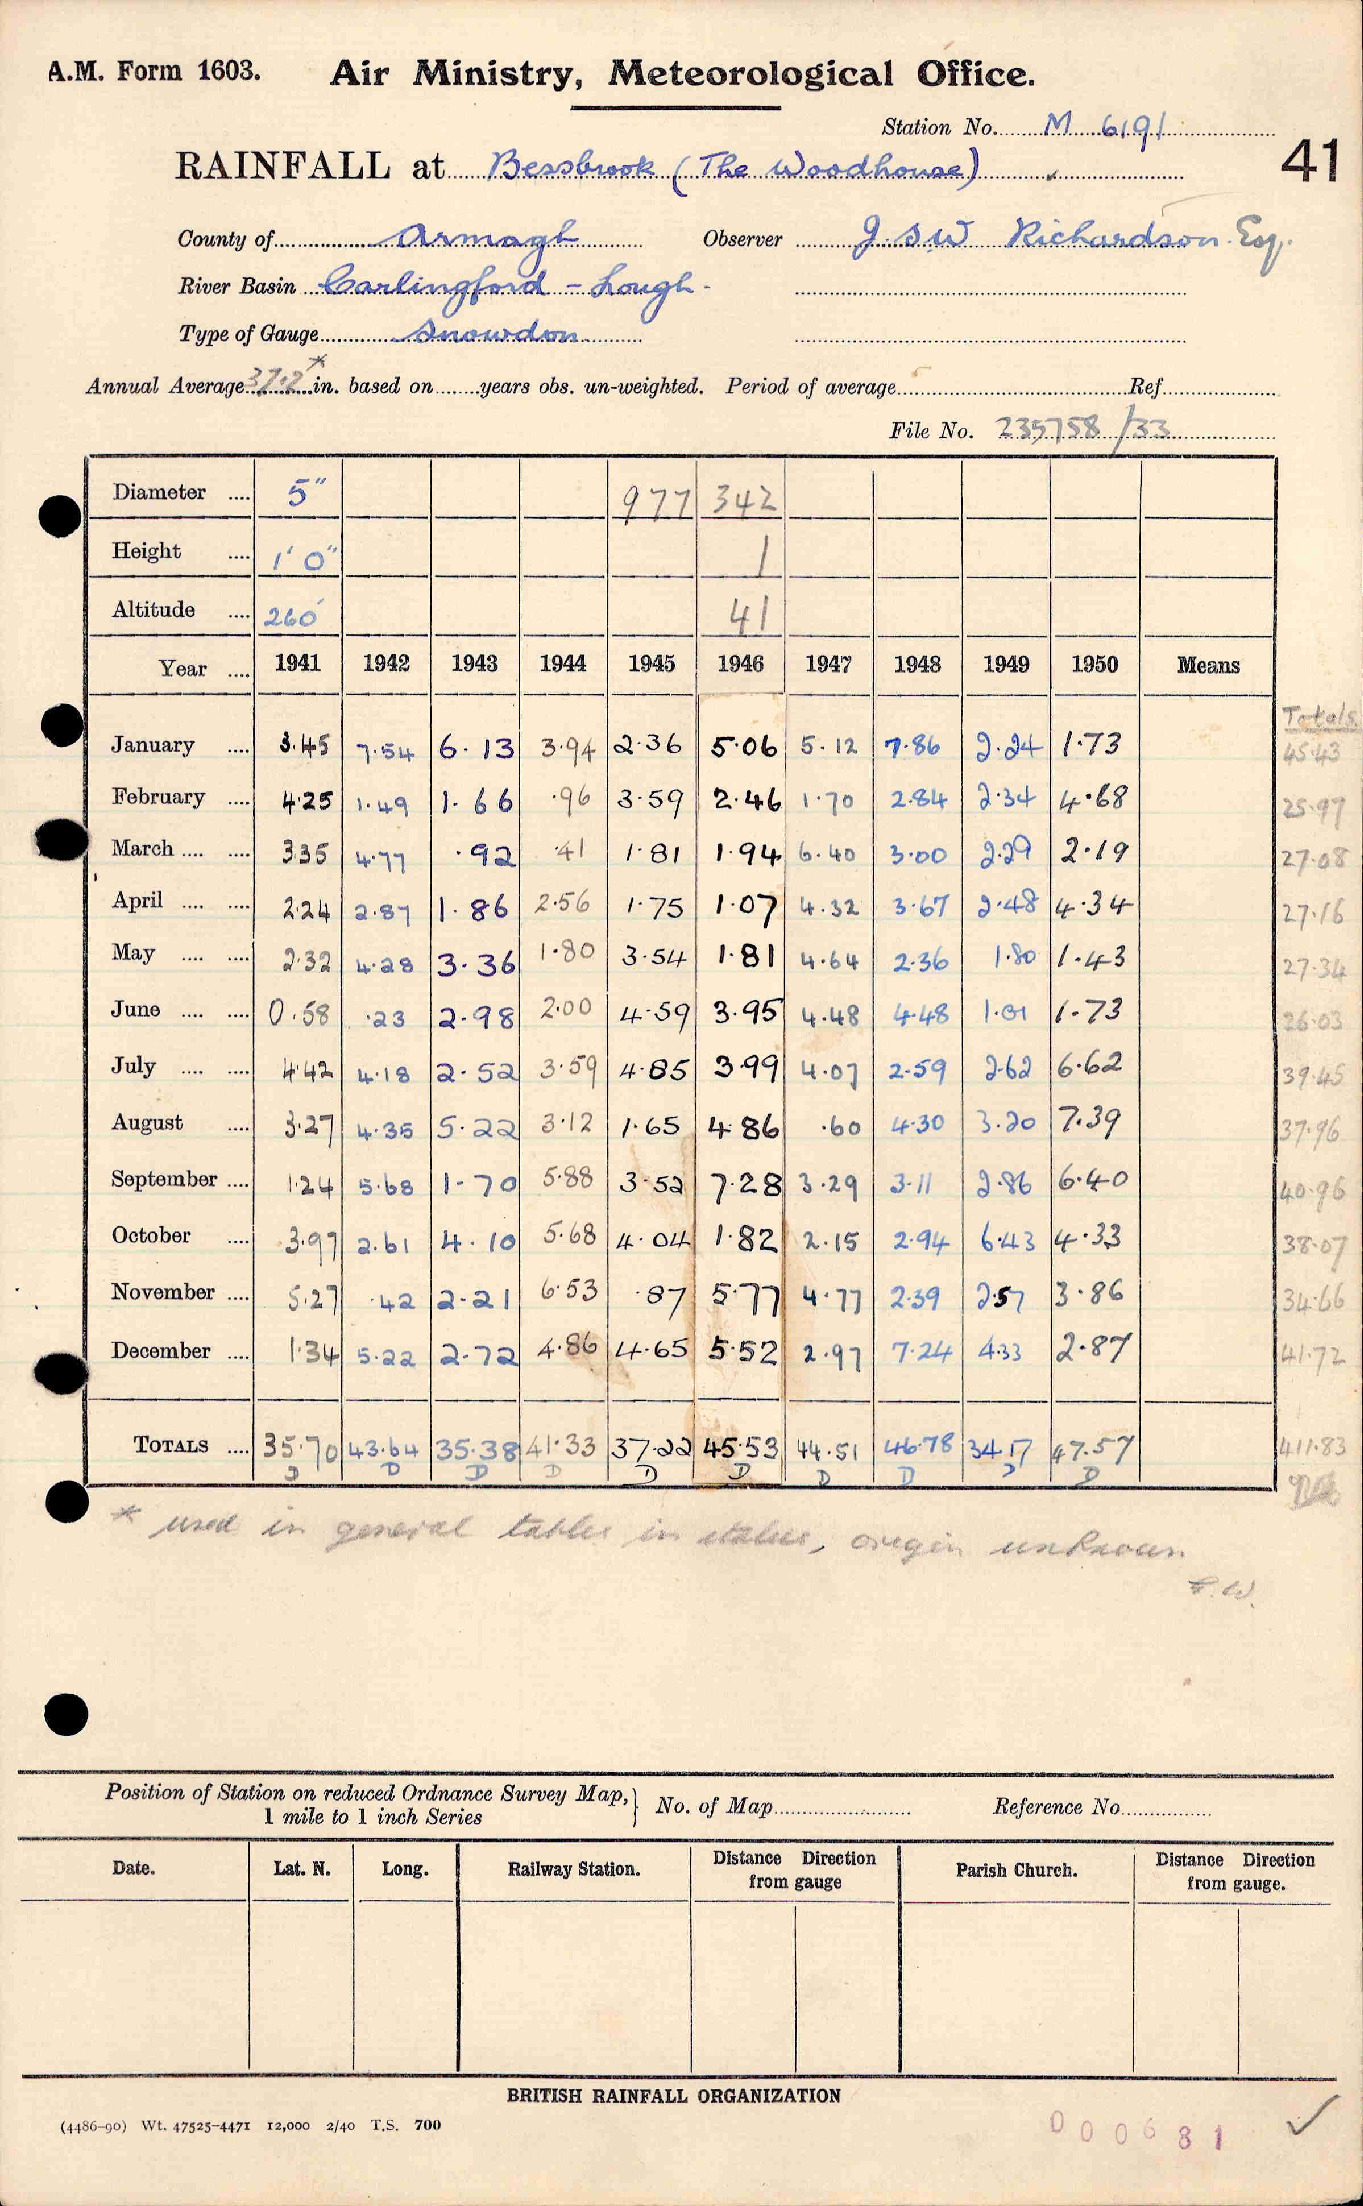 A.M. Form 1603. Air Ministry, Meteorological Office.
Station No. M 6191
41
RAINFALL at Bessbrook (The Woodhouse)
County of Armagh Observer J S W Richardson Esq.
River Basin Carlingford - Lough.
Type of Gauge Snowdon
Annual Average 37.2* in. based on years obs. un-weighted. Period of average Ref.
File No. 235758/33
Diameter .... 5" 977 342
Height .... 1' 0" 1
Altitude .... 260' 41
Year .... 1941 1942 1943 1944 1945 1946 1947 1948 1949 1950 Means
Totals
January .... 3.45 7.54 6.13 3.94 2.36 5.06 5.12 7.86 2.24 1.73 45.43
February .... 4.25 1.49 1.66 .96 3.59 2.46 1.70 2.84 2.34 4.68 25.97
March .... .... 335 4.77 .92 .41 1.81 1.94 6.40 3.00 2.29 2.19 27.08
April .... .... 2.24 2.87 1.86 2.56 1.75 1.07 4.32 3.67 2.48 4.34 27.16
May .... .... 2.32 4.28 3.36 1.80 3.54 1.81 4.64 2.36 1.80 1.43 27.34
June .... .... 0.58 .23 2.98 2.00 4.59 3.95 4.48 4.48 1.01 1.73 26.03
July .... .... 4.42 4.18 2.52 3.59 4.85 3.99 4.07 2.59 2.62 6.62 39.45
August .... 3.27 4.35 5.22 3.12 1.65 4.86 .60 4.30 3.20 7.39 37.96
September .... 1.24 5.68 1.70 5.88 3.52 7.28 3.29 3.11 2.86 6.40 40.96
October .... 3.97 2.61 4.10 5.68 4.04 1.82 2.15 2.94 6.43 4.33 38.07
November .... 5.27 .42 2.21 6.53 .87 5.77 4.77 2.39 2.57 3.86 34.66
December .... 1.34 5.22 2.72 4.86 4.65 5.52 2.97 7.24 4.33 2.87 41.72
TOTALS .... 35.70 43.64 35.38 41.33 37.22 45.53 44.51 46.78 34.17 47.57 411.83
D D D D D D D D D D
* used in general tables in italics, origin unknown
F.W.
Position of Station on reduced Ordnance Survey Map,} No. of Map Reference No.
1 mile to 1 inch Series
Date. Lat. N. Long. Railway Station. Distance Direction from gauge Parish Church. Distance Direction from gauge.
BRITISH RAINFALL ORGANIZATION
(4486-90) Wt. 47525-4471 12,000 2/40 T.S. 700
000681